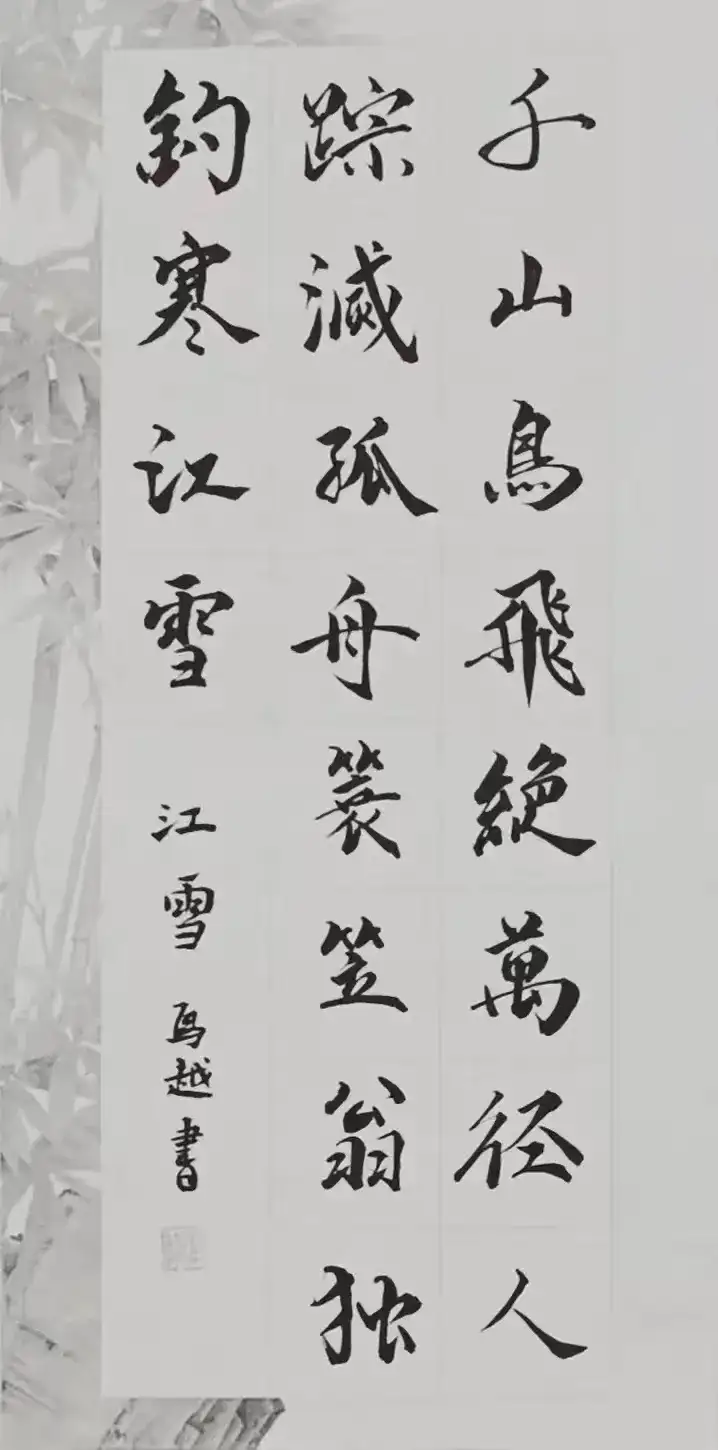 千山鳥飛絶萬径人
踪滅孤舟簑笠翁独
釣寒江雪
江雪 馬越書